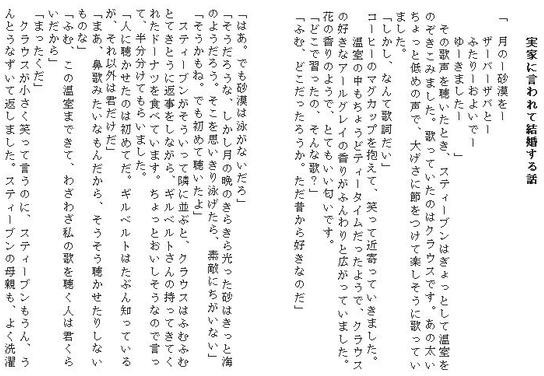 実家に言われて結婚する話
「　月のー砂漠をー
　　ザーバーザバとー
　　ふたりーおよいでー
　　ゆーきましたー　　」
　その歌声を聴いたとき、スティーブンはぎょっとして温室を
のぞきこみました。歌っていたのはクラウスです。あの太い
ちょっと低めの声で、大げさに節をつけて楽しそうに歌ってい
ました。
「しかし、なんて歌詞だい」
コーヒーのマグカップを抱えて、笑って近寄っていきました。
　温室の中もちょうどティータイムだったようで、クラウス
の好きなアールグレイの香りがふんわりと広がっていました。
花の香りのようで、とてもいい匂いです。
「どこで習ったの、そんな歌？」
「ふむ、どこだったろうか。ただ昔から好きなのだ」
「はあ。でも砂漠は泳がないだろ」
「そうだろうな、しかし月の晩のきらきら光った砂はきっと海
のようだろう。そこを思いきり泳げたら、素敵にちがいない」
「そうかもね。でも初めて聴いたよ」
　スティーブンがそういって隣に並ぶと、クラウスはふむふむ
とてきとうに返事をしながら、ギルベルトさんの持ってきてく
れたドーナツを食べています。ちょっとおいしそうなので言っ
て、半分分けてもらいました。
「人に聴かせたのは初めてだ。ギルベルトはたぶん知っている
が、それ以外は君だけだ」
「まあ、鼻歌みたいなもんだから、そうそう聴かせたりしない
ものな」
「ふむ、この温室まできて、わざわざ私の歌を聴く人は君くら
いだから」
「まったくだ」
　クラウスが小さく笑って言うのに、スティーブンもうん、う
んとうなずいて返しました。スティーブンの母親も、よく洗濯